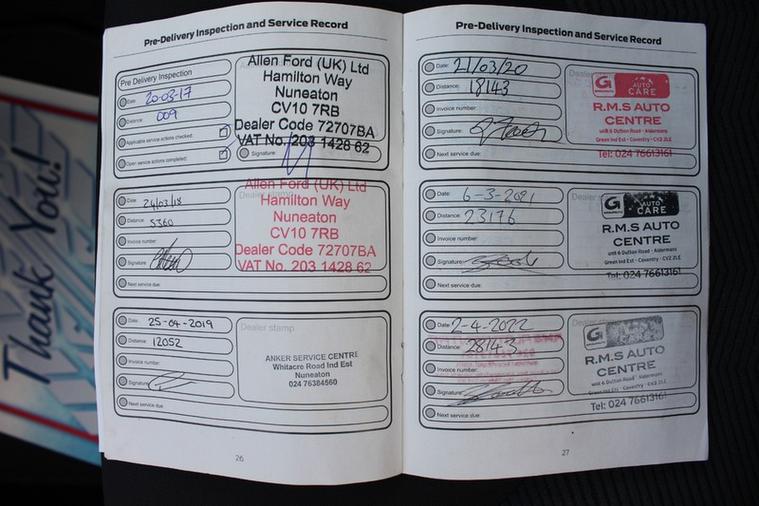 Pre-Delivery Inspection and Service Record
Pre Delivery Inspection
Date 20-03-17
Distance 009
Applicable service actions checked:
Open service actions completed:
Allen Ford (UK) Ltd
Hamilton Way
Nuneaton
CV10 7RB
Dealer Code 72707BA
VAT No. 203 1428 62
Signature:
Date: 24/03/18
Distance: 5360
Invoice number:
Signature
Next service due:
Allen Ford (UK) Ltd
Hamilton Way
Nuneaton
CV10 7RB
Dealer Code 72707BA
VAT No. 203 1428 62
Date: 25-04-2019
Distance: 12052
Invoice number:
Signature
Next service due
Dealer stamp
ANKER SERVICE CENTRE
Whitacre Road Ind Est
Nuneaton
024 76384560
26
Pre-Delivery Inspection and Service Record
Date: 21/03/20
Distance: 18143
Invoice number:
Signature:
Next service due:
AUTO
CARE
R.M.S AUTO
CENTRE
unit 6 Dutton Road - Aldermans
Green Ind Est - Coventry - CV2 2LE
Tel: 024 76613161
Date: 6-3-2021
Distance: 23176
Invoice number:
Signature:
Next service due:
AUTO
CARE
R.M.S AUTO
CENTRE
unit 6 Dutton Road - Aldermans
Green Ind Est - Coventry - CV2 2LE
Tel: 024 76613161
Date: 2-4-2022
Distance: 28143
Invoice number:
Signature:
Next service due:
R.M.S AUTO
CENTRE
unit 6 Dutton Road - Aldermans
Green Ind Est - Coventry - CV2 2LE
Tel: 024 76613161
27
Thank You!